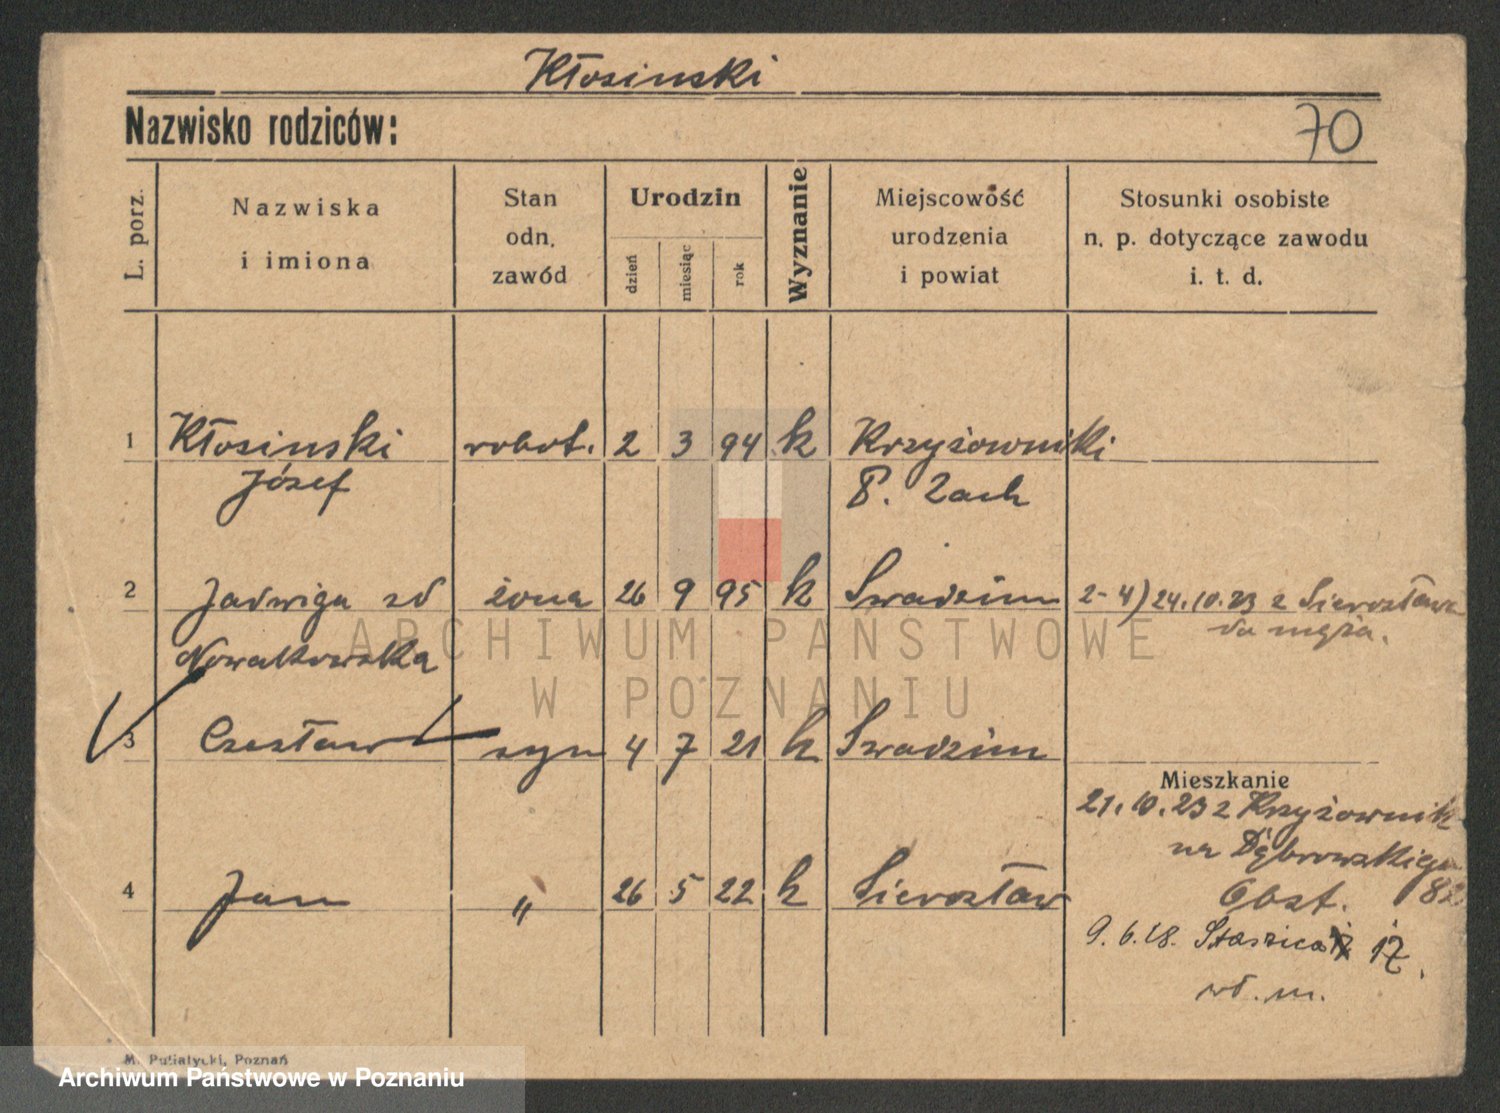 Kłosinski
Nazwisko rodziców:
70
L. porz.
Nazwiska
i imiona
Stan
odn.
zawód
Urodzin
dzień
miesiąc
rok
Wyznanie
Miejscowość
urodzenia
i powiat
Stosunki osobiste
n. p. dotyczące zawodu
i. t. d.
1 Kłosinski robot. 2 3 94 k Krzyżowniki
Józef P. Zach
2 Jadwiga zd żona 26 9 95 k Swadzim 2-4) 24.10.23 z Sierosław
Nowakowska do męża.
3 Czesław syn 4 7 21 k Swadzim
Mieszkanie
21.10.23 z Krzyżownik
na Dąbrowskiego
4 Jan " 26 5 22 k Sierosław
Obst. 82
9.6.28. Staszica 17.
wł. m.
M. Putiatycki, Poznań
ARCHIWUM PAŃSTWOWE
W POZNANIU
Archiwum Państwowe w Poznaniu